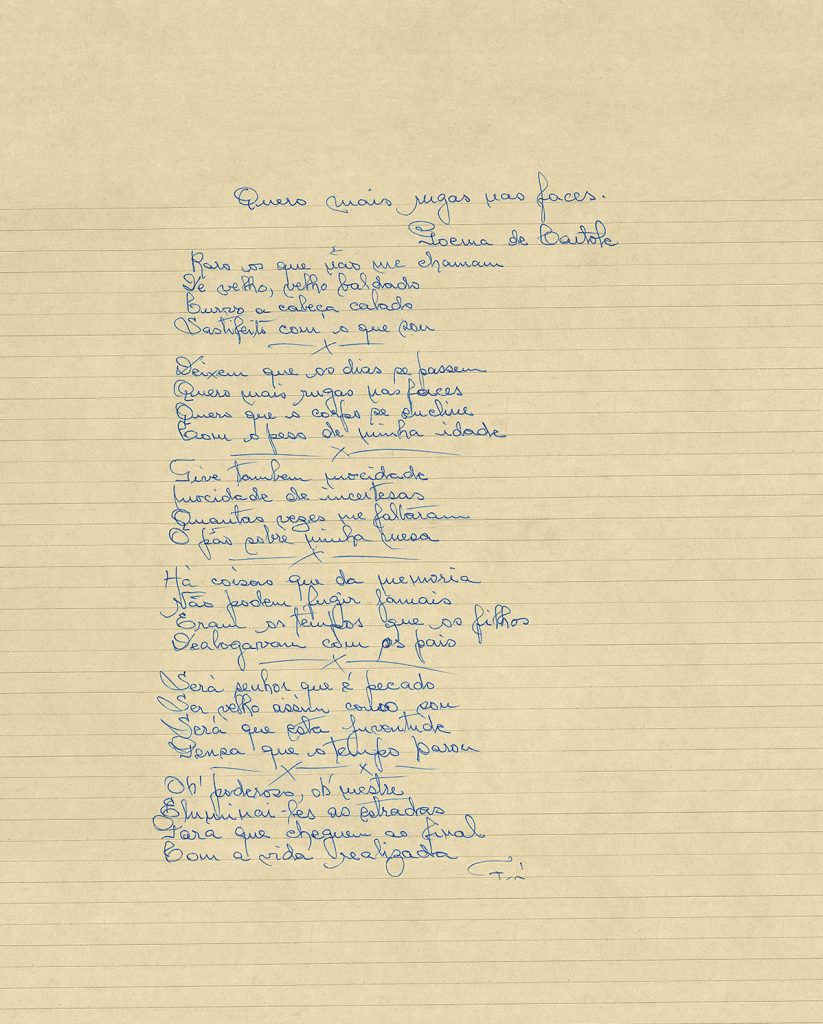 Quero mais rugas nas faces.
Poema de Cartola
Raro os que não me chamam
De velho, velho baldado
Curvo a cabeça calado
Sastifeito com o que sou
Deixem que os dias se passem
Quero mais rugas nas faces
Quero que o corpo se encline
Com o peso de minha idade
Tive tambem mocidade
mocidade de incertesas
Quantas vezes me faltaram
O pão sobre minha mesa
Há coisas que da memoria
Não podem fugir jamais
Eram os tempos que os filhos
Dealogavam com os pais
Será senhor que é pecado
Ser velho assim como sou
Será que esta juventude
Pensa que o tempo parou
Oh' poderoso, oh' mestre
Eluminai-les as estradas
Para que cheguem ao final
Com a vida realizada
Fim